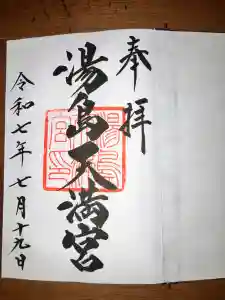 奉拝
湯島天満宮
令和七年七月十九日